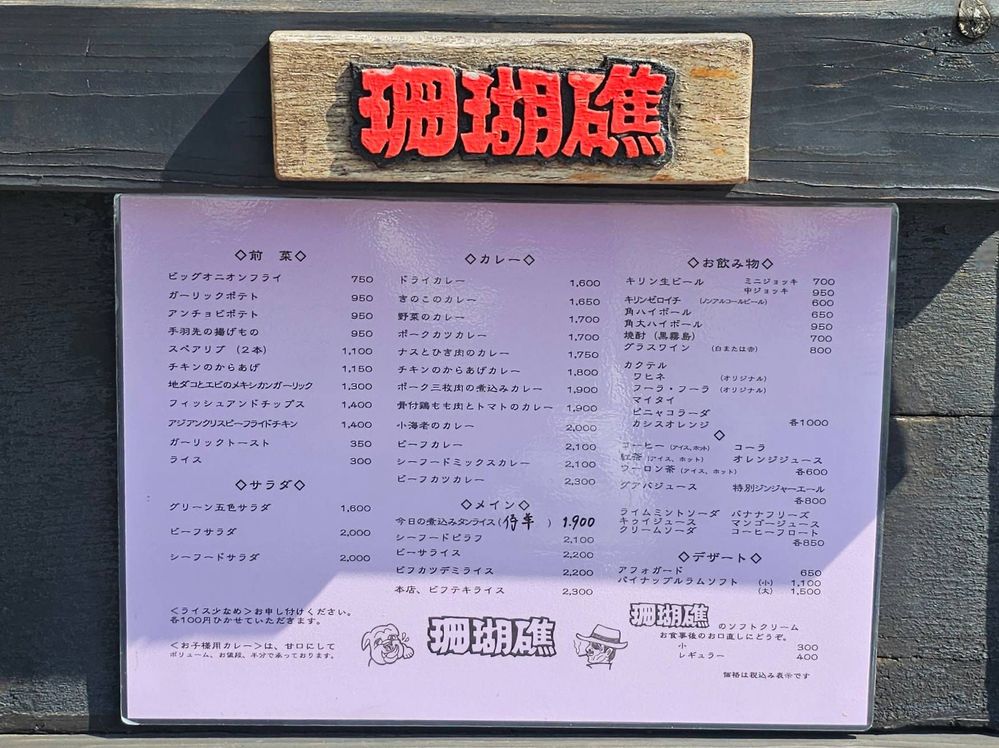 珊瑚礁
◇前 菜◇
ビッグオニオンフライ 750
ガーリックポテト 950
アンチョビポテト 950
手羽先の揚げもの 950
スペアリブ (2本) 1,100
チキンのからあげ 1,150
地ダコとエビのメキシカンガーリック 1,300
フィッシュアンドチップス 1,400
アジアンクリスピーフライドチキン 1,400
ガーリックトースト 350
ライス 300
◇サラダ◇
グリーン五色サラダ 1,600
ビーフサラダ 2,000
シーフードサラダ 2,000
<ライス少なめ>お申し付けください。
各100円ひかせていただきます。
<お子様用カレー>は、甘口にして
ボリューム、お値段、半分で承っております。
◇カレー◇
ドライカレー 1,600
きのこのカレー 1,650
野菜のカレー 1,700
ポークカツカレー 1,700
ナスとひき肉のカレー 1,750
チキンのからあげカレー 1,800
ポーク三枚肉の煮込みカレー 1,900
骨付鶏もも肉とトマトのカレー 1,900
小海老のカレー 2,000
ビーフカレー 2,100
シーフードミックスカレー 2,100
ビーフカツカレー 2,300
◇メイン◇
今日の煮込みタンライス( ) 1.900
シーフードピラフ 2,100
ビーサライス 2,200
ビフカツデミライス 2,200
本店、ビフテキライス 2,300
珊瑚礁
◇お飲み物◇
キリン生ビール ミニジョッキ 700
中ジョッキ 950
キリンゼロイチ (ノンアルコールビール) 600
角ハイボール 650
角大ハイボール 950
焼酎(黒霧島) 700
グラスワイン (白または赤) 800
カクテル
ワヒネ (オリジナル)
フーラ・フーラ (オリジナル)
マイタイ
ピニャコラーダ
カシスオレンジ 各1000
◇
コーヒー(アイス、ホット) コーラ
紅茶(アイス、ホット) オレンジジュース
ウーロン茶(アイス、ホット) 各600
グアバジュース 特別ジンジャーエール
各800
ライムミントソーダ バナナフリーズ
キゥイジュース マンゴージュース
クリームソーダ コーヒーフロート
各850
◇デザート◇
アフォガード 650
パイナップルラムソフト (小) 1,100
(大) 1,500
珊瑚礁 のソフトクリーム
お食事後のお口直しにどうぞ。
小 300
レギュラー 400
価格は税込み表示です